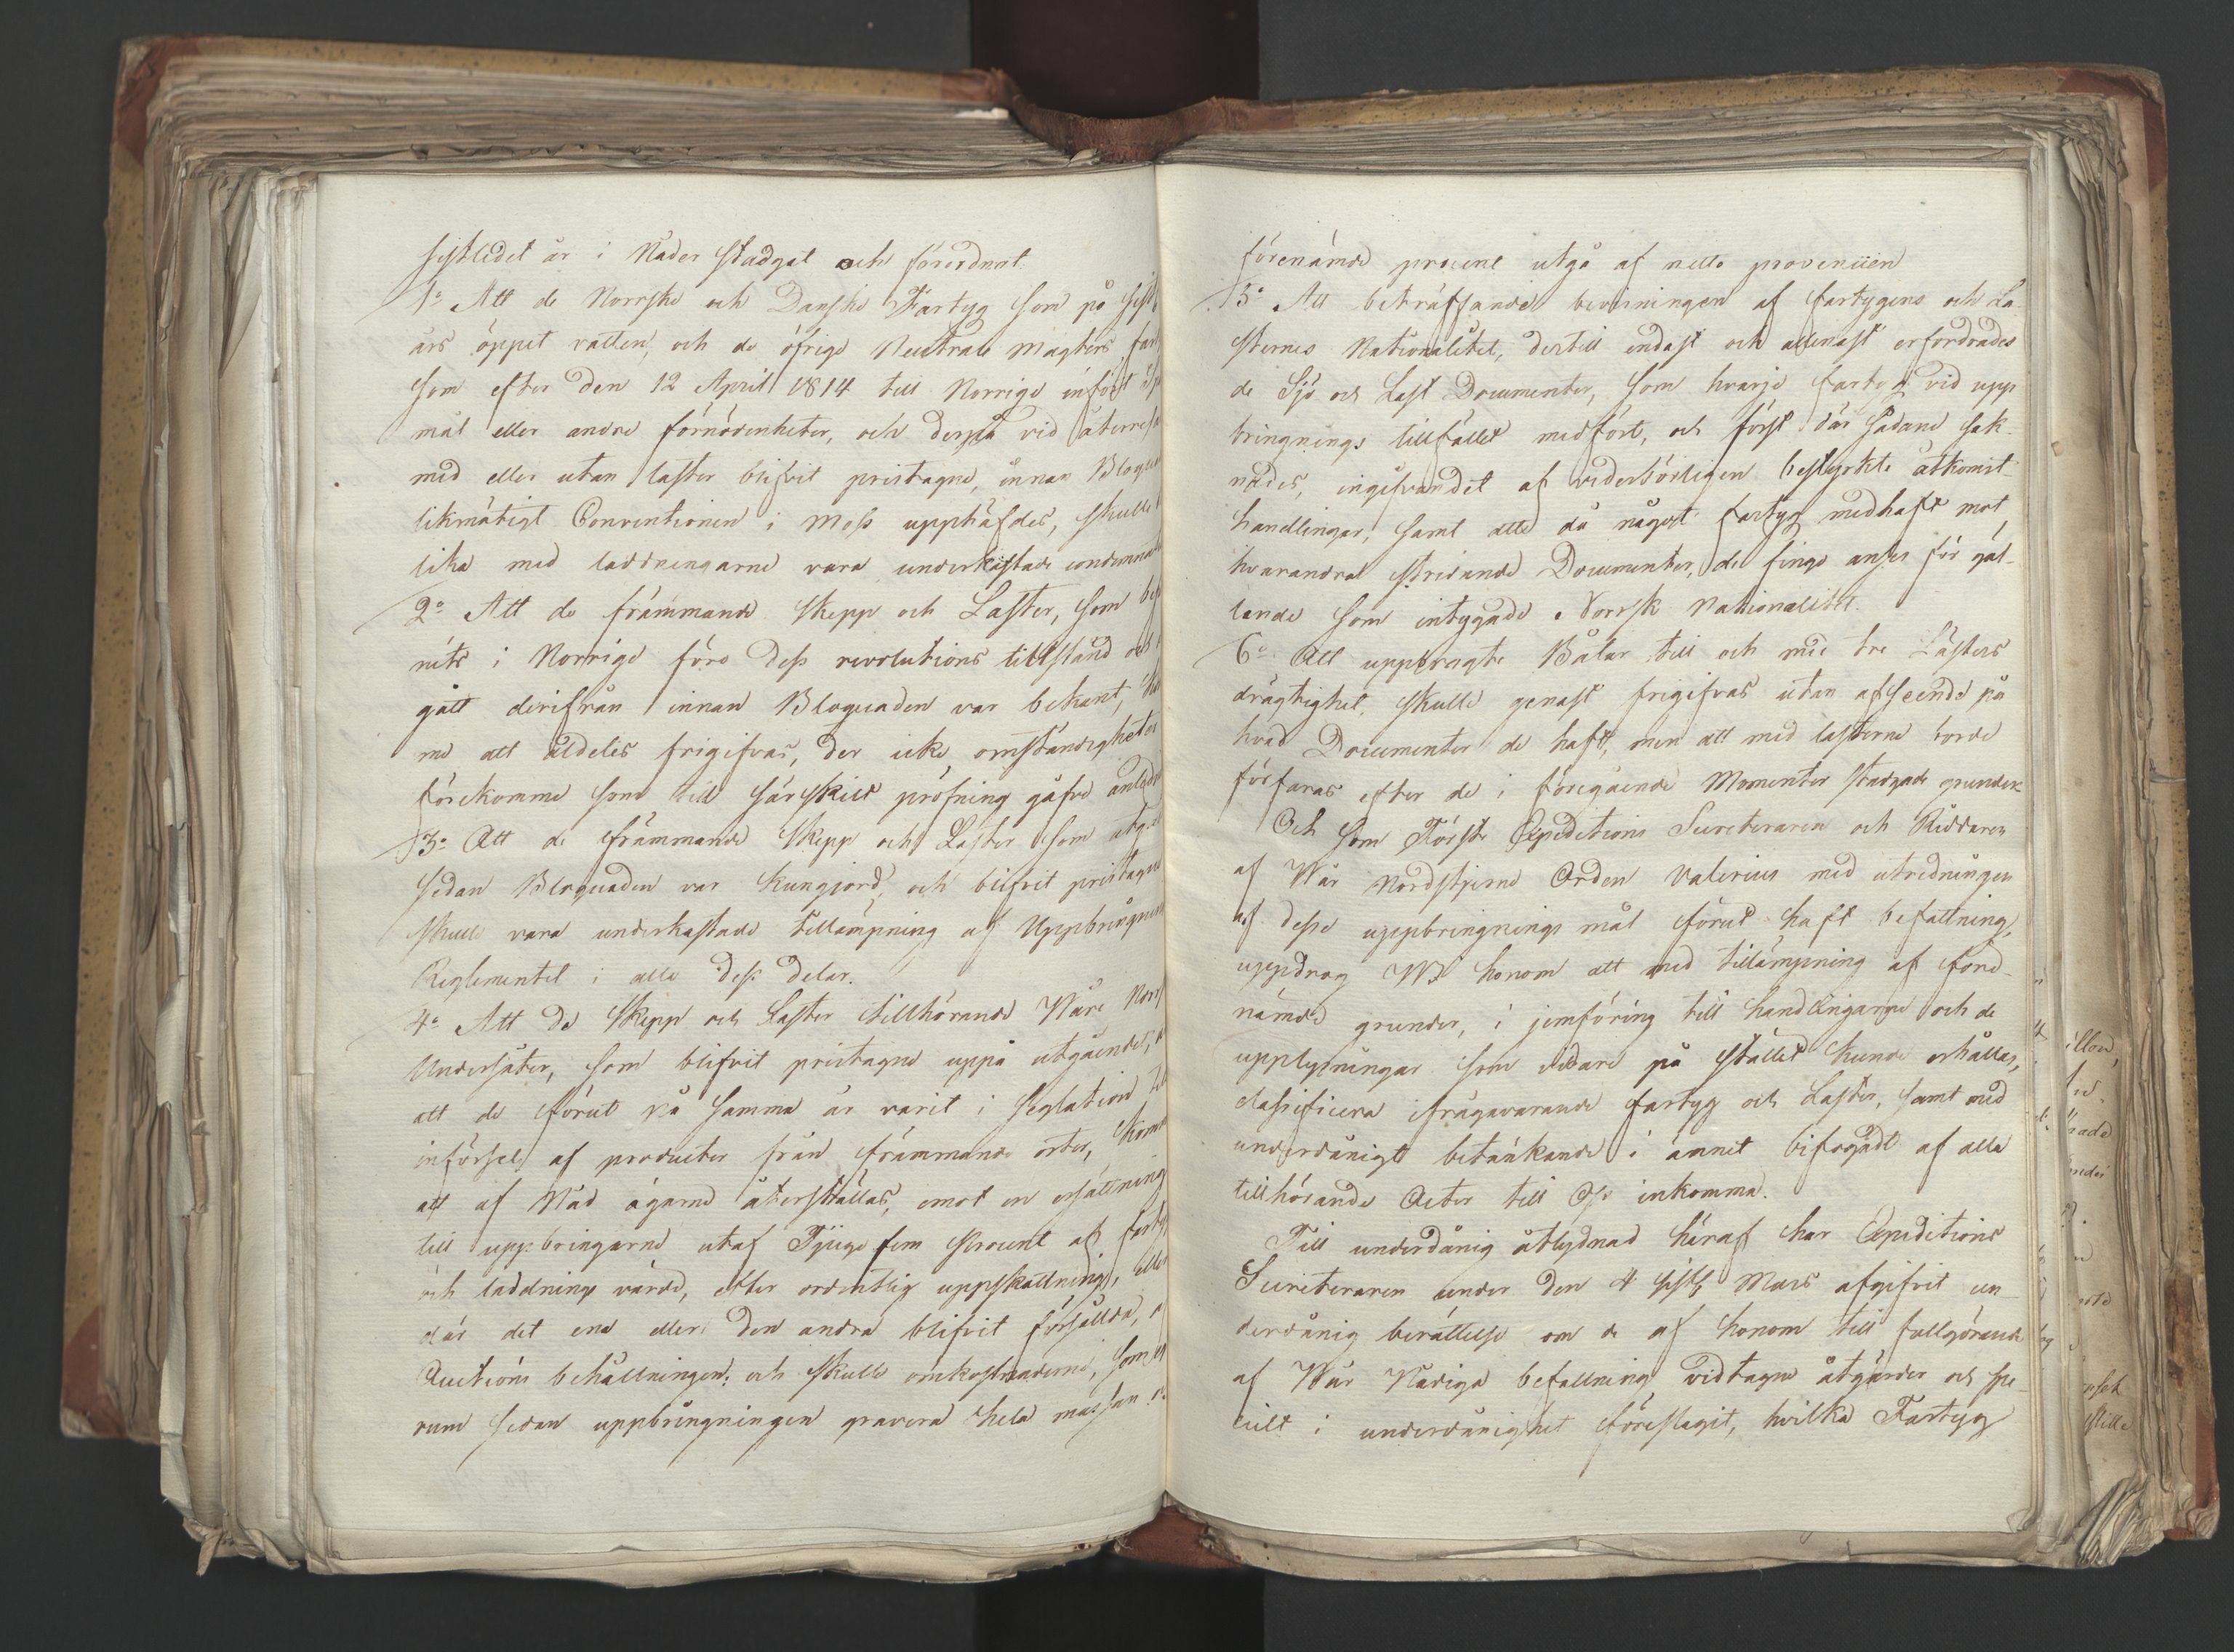 sistledet år i Nåder stadgat och förordnat
1o Att de Norrska och Danska Fartyg som på sist
års öppet vatten, och de öfrige Neutrale Magters
som efter den 12 April 1814 till Norrige infört
mål eller andra förnödenheter, och derpå vid återresa
med eller utan laster blifvit pristagne, innan
likmätigt Conventionen i Moss upphäfdes, skulle
lika med laddningarne vara underkastade
2o Att de främmande skepp och Laster, som
nits i Norrige före dess revolutions tillstånd och
gått derifrån innan Bloquaden var bekant,
me att aldeles frigifvas, der icke omständigheter
förekomme som till särskilt pröfning gåfve
3o Att de främmande Skepp och Laster som
sedan Bloquaden var kungjord, och blifvit pristagne
skulle vara underkastade tillämpning af
Reglementet i alla dess delar.
4o Att de Skepp och Laster tillhörande Våre
Undersåter, som blifvit pristagne uppå utgående,
att de förut på samma år varit i seglation
införsel af producter från främmande orter,
att af Nåd ägarne återställas, emot en ersättning
till uppbringarne utaf Tjugo fem procent af
och laddnings värde, efter ordentlig uppskattning, eller
där det ena eller den andra blifvit försållda,
Auctions behållningen; och skulle omkostnaderne, som
rum sedan uppbringningen gravera hela massan
förenämde procent utgå af netto provenüen
5o Att beträffande bevisningen af fartygens och La-
sternes Nationalitet, dertill endast och allenast erfordrades
de Sjö och Last Documenter, som hvarje fartyg vid upp
bringnings tillfället medfört, och först där sådane sak-
nades, ingifvandet af vederbörligen bestyrkte åtkomst
handlingar; samt att då något fartyg medhaft mot
hvarandra stridande Documenter, de finge anses för gäl-
lande som intygade Norrsk Nationalitet.
6o Att uppbragte Båtar till och med tre Lästers
drägtighet, skulle genast frigifvas utan afseende på
hvad Documenter de haft, men att med lasterne borde
förfaras efter de i föregående Momenter stadgade grunder
Och som Förste Expeditions Secreteraren och Riddaren
af Vår Nordstjerne Orden Valerius med utredningen
af desse uppbringnings mål förut haft befattning,
uppdrog Vi honom att med tillämpning af före-
nämde grunder, i jemföring till handlingarne och de
upplysningar som vidare på stället kunde erhållas,
classificera ifrågavarande fartyg och Laster, samt med
underdånigt betänkande i ämnet bifogadt af alla
tillhörande Acter till Oss inkomma.
Till underdånig åtlydnad häraf har Expeditions
Secreteraren under den 4 sistl. Mars afgifvit un-
derdånig berättelse om de af honom till fullgörande
af Vår Nådiga befallning vidtagne åtgärder och spe-
cielt i underdånighet föreslagit, hvilka Fartyg